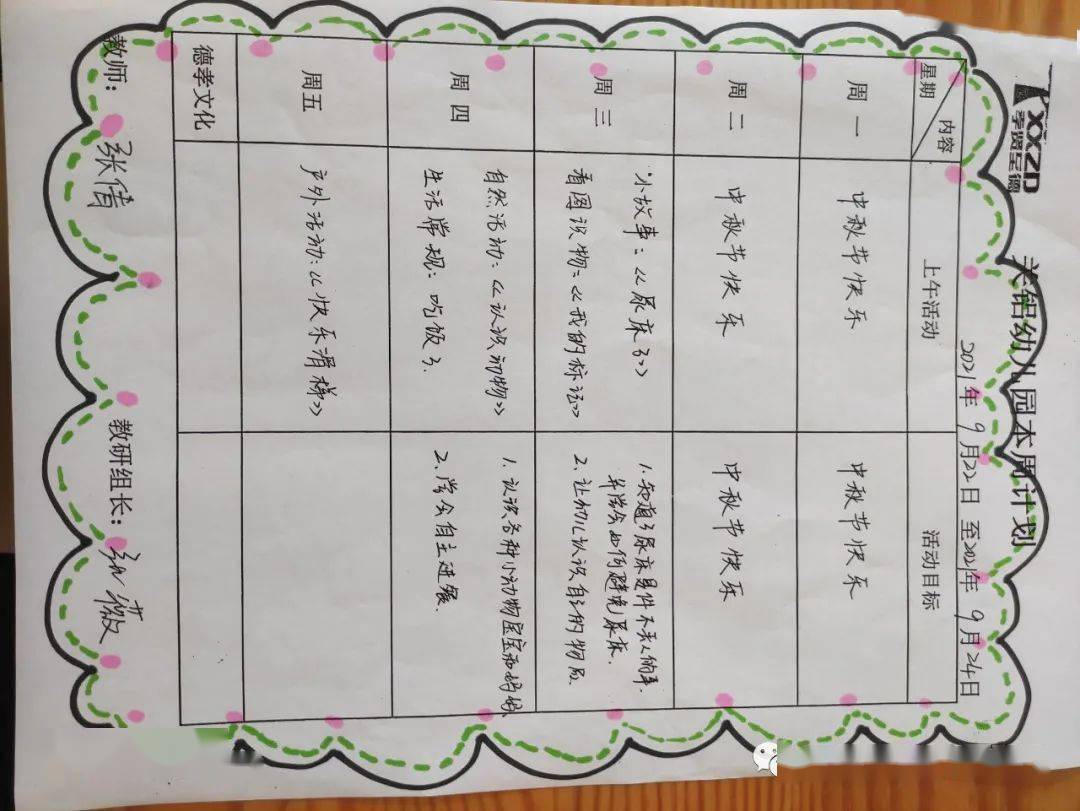 XXZD
孝贤至德
关铝幼儿园本周计划
2021年 9月22日 至2021年 9月24日
星期 内容
上午活动
活动目标
周一
中秋节快乐
中秋节快乐
周二
中秋节快乐
中秋节快乐
周三
小故事：《尿床了》
看图识物：《我的标记》
1.知道了尿床是件不丢人的事.
并学会如何避免尿床.
2.让幼儿认识自己的物品.
周四
自然活动：《认识动物》
生活常规：吃饭了.
1.认识各种小动物宝宝和妈妈
2.学会自主进餐.
周五
户外活动：《快乐滑梯》
德孝文化
教师：张倩
教研组长：
薇